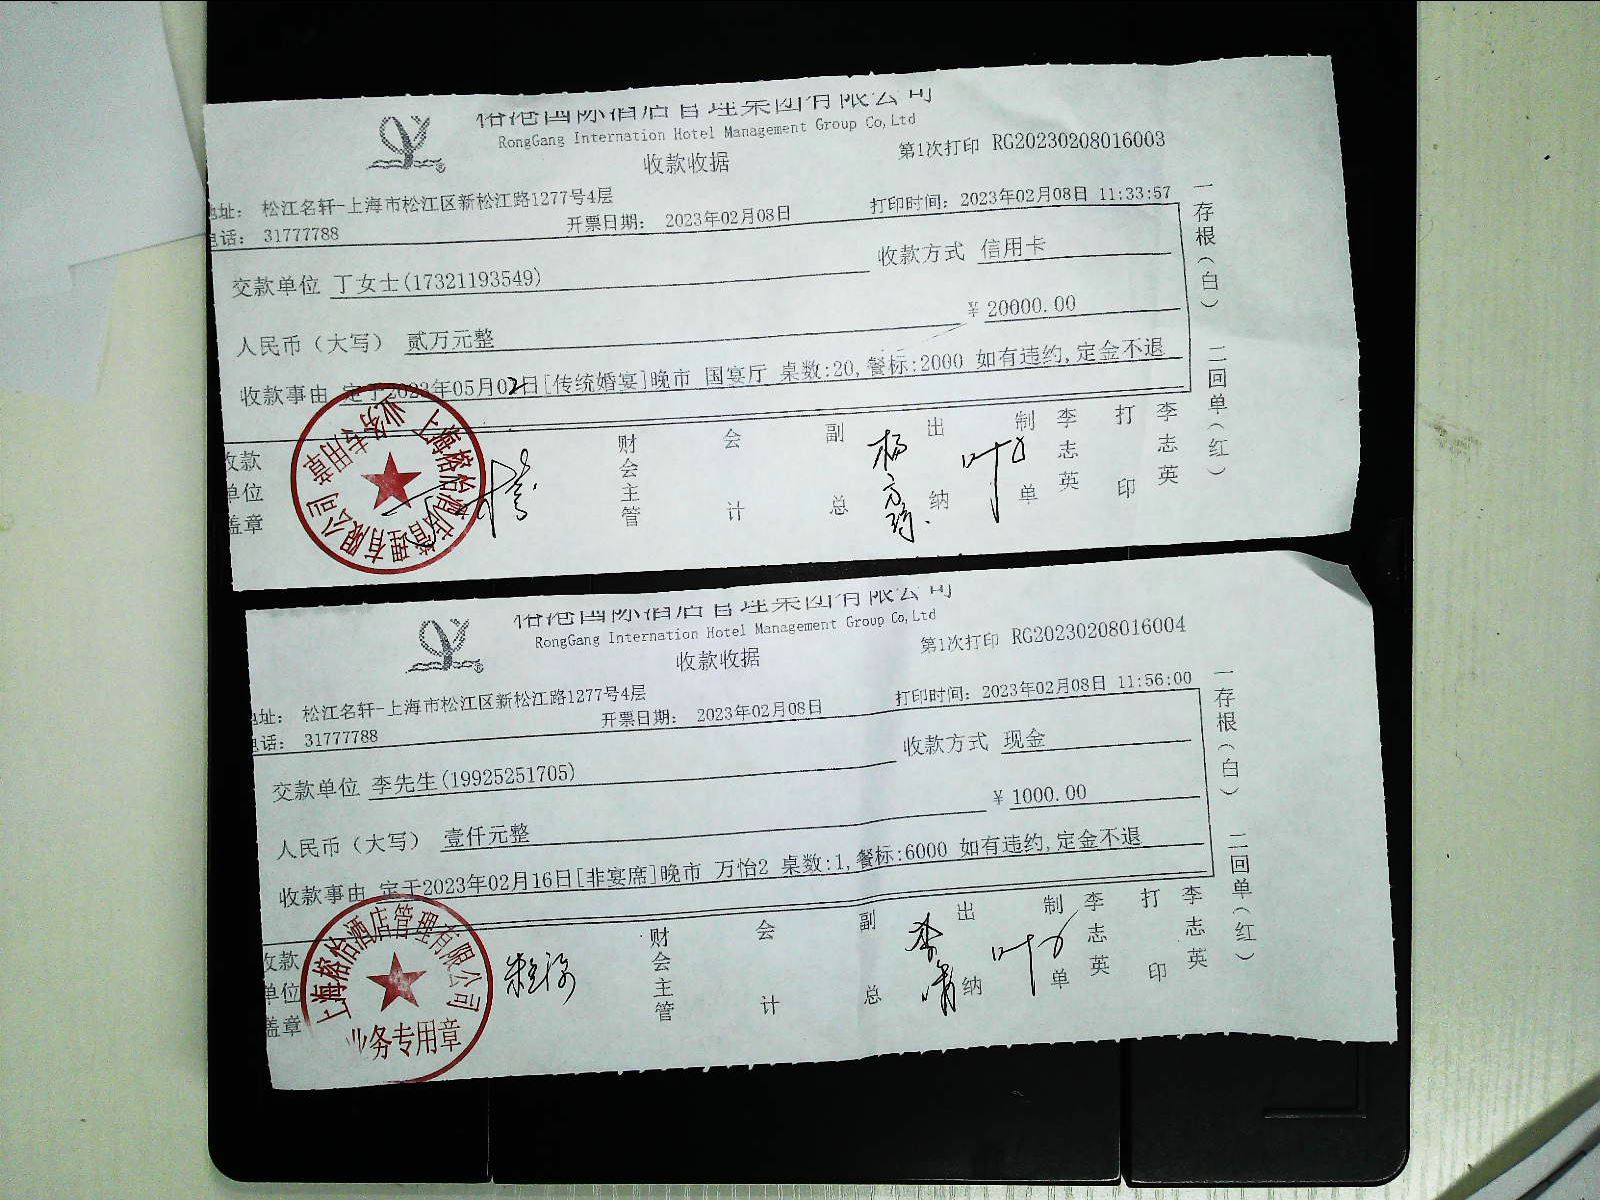 榕港国际酒店管理集团有限公司
RongGang Internation Hotel Management Group Co,Ltd
收款收据
第1次打印 RG20230208016003
地址： 松江名轩-上海市松江区新松江路1277号4层
电话： 31777788
开票日期： 2023年02月08日
打印时间：2023年02月08日 11:33:57
交款单位 丁女士(17321193549)
收款方式 信用卡
人民币（大写） 贰万元整
¥ 20000.00
收款事由 定于2023年05月02日[传统婚宴]晚市 国宴厅 桌数:20,餐标:2000 如有违约,定金不退
收款单位盖章
财会主管
会计
副总
出纳
制单
李志英
打印
李志英
一存根（白） 二回单（红）
上海榕怡酒店管理有限公司
业务专用章
榕港国际酒店管理集团有限公司
RongGang Internation Hotel Management Group Co,Ltd
收款收据
第1次打印 RG20230208016004
地址： 松江名轩-上海市松江区新松江路1277号4层
电话： 31777788
开票日期： 2023年02月08日
打印时间：2023年02月08日 11:56:00
交款单位 李先生(19925251705)
收款方式 现金
人民币（大写） 壹仟元整
¥ 1000.00
收款事由 定于2023年02月16日[非宴席]晚市 万怡2 桌数:1,餐标:6000 如有违约,定金不退
收款单位盖章
财会主管
会计
副总
出纳
制单
李志英
打印
李志英
一存根（白） 二回单（红）
上海榕怡酒店管理有限公司
业务专用章